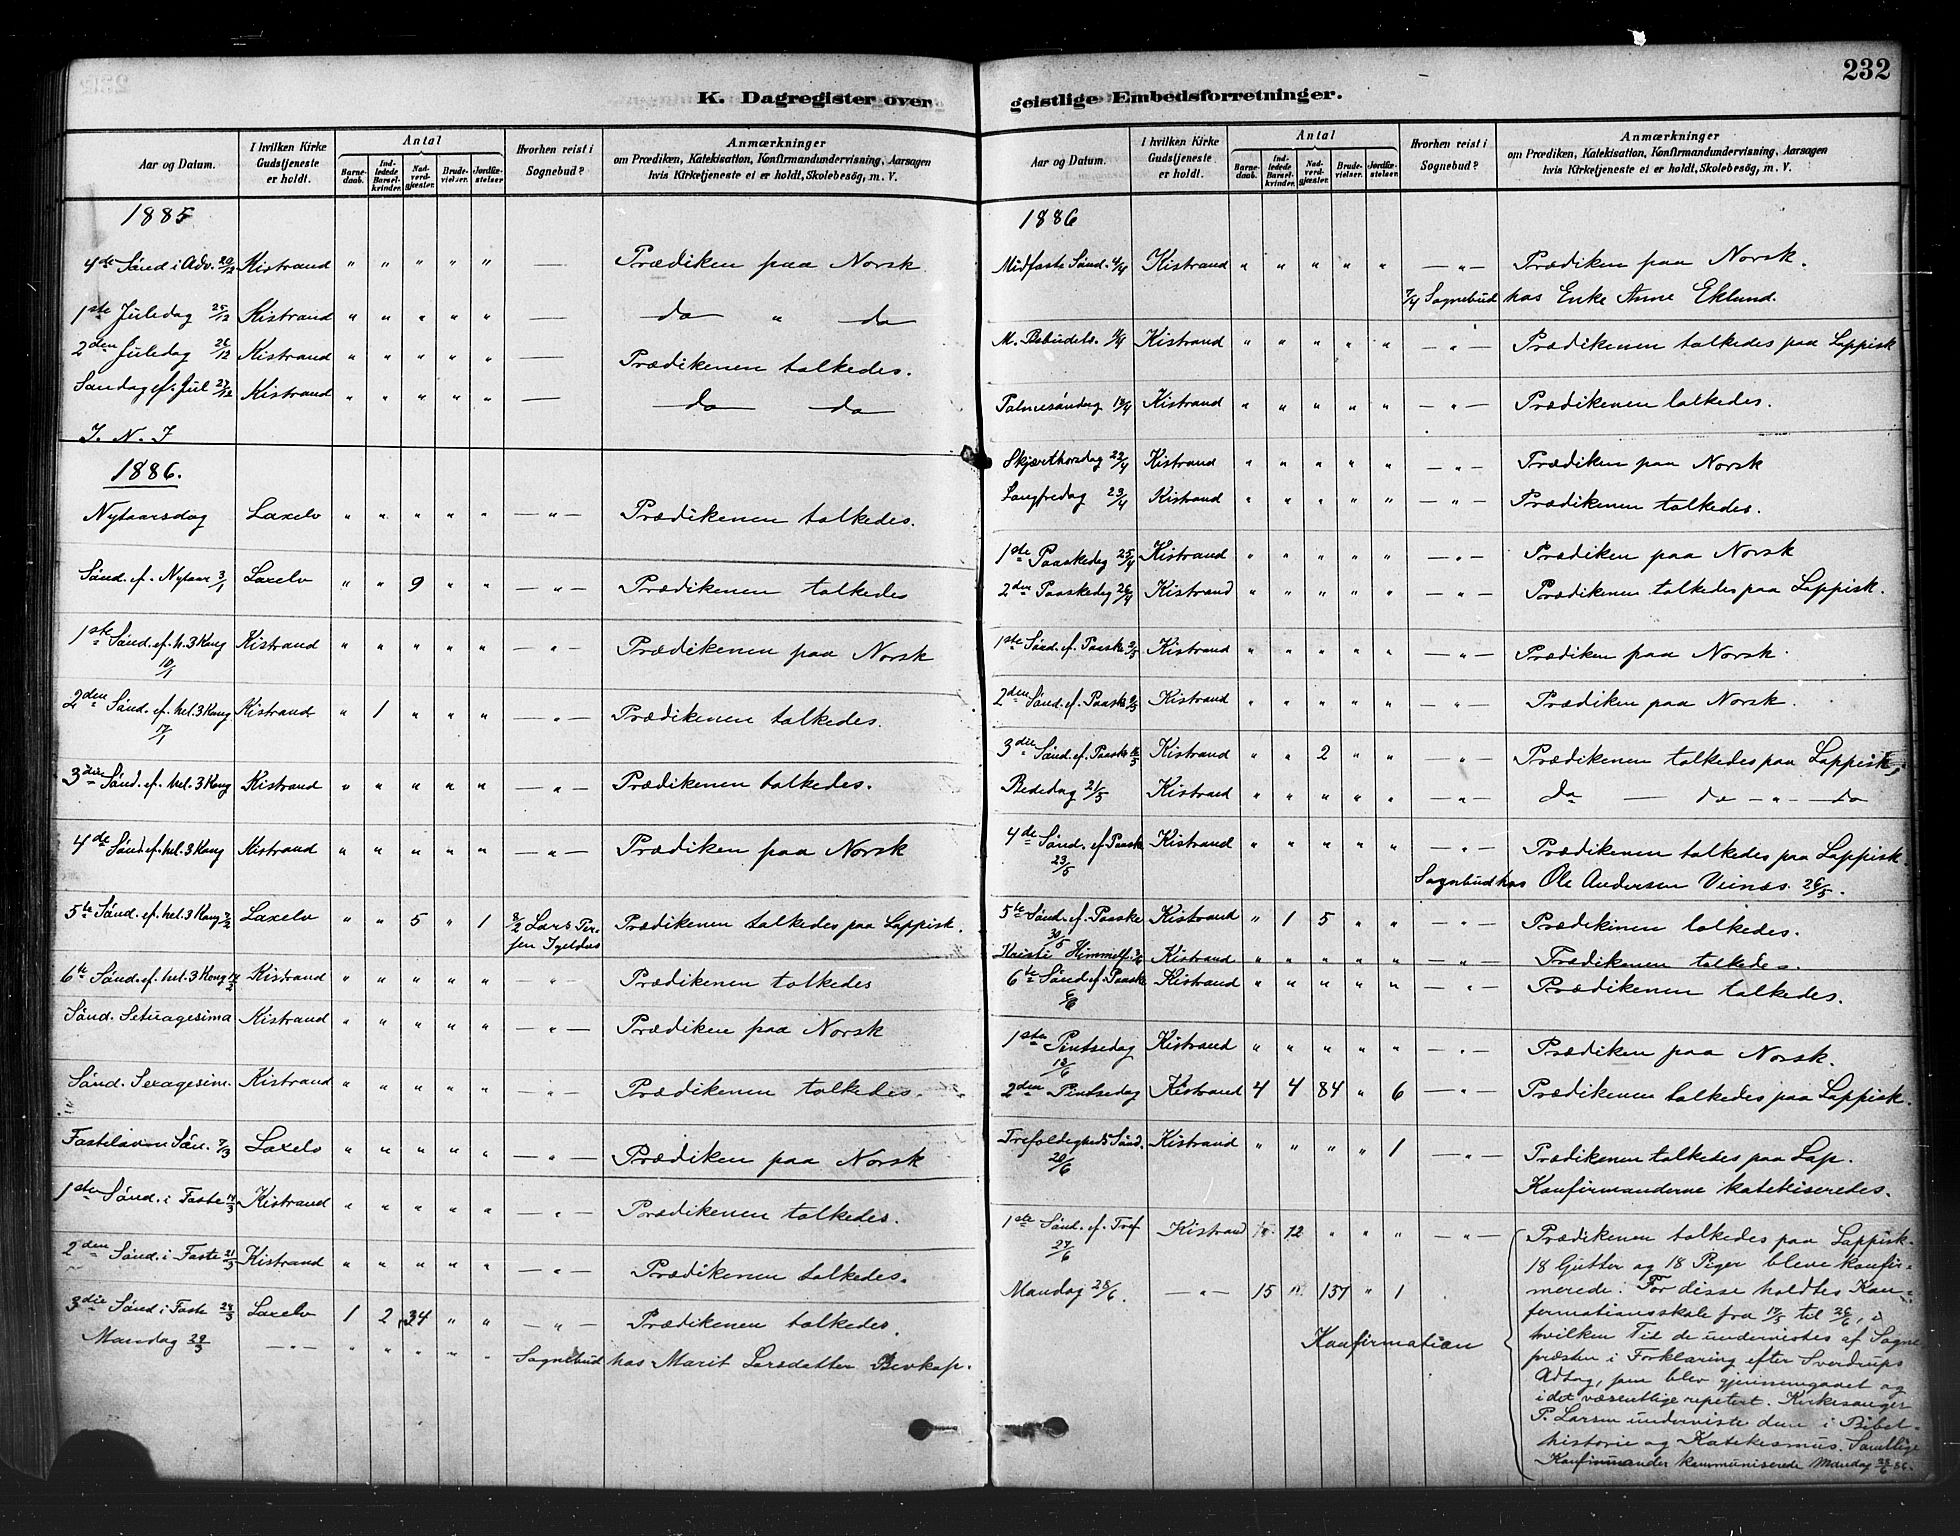 232
K. Dagregister over geistlige Embedsforretninger.
Aar og Datum. | I hvilken Kirke Gudstjeneste er holdt. | Antal | Barnedaab. | Indledede Barselkvinder. | Nadverdgjæster. | Brudevielser. | Jordfæstelser | Hvorhen reist i Sognebud? | Anmærkninger om Prædiken, Katekisation, Konfirmandundervisning, Aarsagen hvis Kirketjeneste ei er holdt, Skolebesög, m. V.
1885
4de Sönd i Adv. 20/12 Kistrand " " " " " — Prædiken paa Norsk
1ste Juledag 25/12 Kistrand " " " " " — do " do
2den Juledag 26/12 Kistrand " " " " " — Prædikenen tolkedes.
Söndag ef. Jul 27/12 Kistrand " " " " " — do do
I. N. J
1886.
Nytaarsdag Laxelv " " " " " — " — Prædikenen tolkedes.
Sönd. ef. Nytaar 3/1 Laxelv " " 9 " " — " — Prædikenen tolkedes
1ste Sönd. ef. h. 3 Kong 10/1 Kistrand " " " " " — " — Prædikenen paa Norsk
2den Sönd. ef. hel. 3 Kong 17/1 Kistrand " 1 " " " — " — Prædikenen tolkedes.
3die Sönd. ef. hel. 3 Kong Kistrand " " " " " — " — Prædikenen tolkedes.
4de Sönd. ef. hel. 3 Kong Kistrand " " " " " — " — Prædiken paa Norsk
5te Sönd. ef. hel. 3 Kong 7/2 Laxelv " " 5 " 1 8/2 Lars Per- Prædikenen tolkedes paa Lappisk.
sen
6te Sönd. ef. hel. 3 Kong 14/2 Kistrand " " " " " — " — Prædikenen tolkedes
Sönd. Setuagesima Kistrand " " " " " — " — Prædiken paa Norsk
Sönd. Sexagesim. Kistrand " " " " " — " — Prædikenen tolkedes.
Fastelavn Sön. 7/3 Laxelv " " " " " — " — Prædiken paa Norsk
1ste Sönd. i Faste 14/3 Kistrand " " " " " — " — Prædikenen tolkedes.
2den Sönd. i Faste 21/3 Kistrand " " " " " — " — Prædikenen tolkedes.
3die Sönd i Faste 28/3 Laxelv 1 2 34 " " — " — Prædikenen tolkedes.
Mandag 29/3 — " — " " " " " Sognebud hos Marit Larsdatter
Aar og Datum. | I hvilken Kirke Gudstjeneste er holdt. | Antal | Barnedaab. | Indledede Barselkvinder. | Nadverdgjæster. | Brudevielser. | Jordfæstelser | Hvorhen reist i Sognebud? | Anmærkninger om Prædiken, Katekisation, Konfirmandundervisning, Aarsagen hvis Kirketjeneste ei er holdt, Skolebesög, m. V.
1886
Midfaste Sönd. 4/4 Kistrand " " " " " — " — Prædiken paa Norsk.
7/4 Sognebud hos Enke Anne Eklund.
M. Bebudels. 11/4 Kistrand " " " " " — " — Prædikenen tolkedes paa Lappisk
Palmesöndag Kistrand " " " " " — " — Prædikenen tolkedes.
Skjærthorsdag 22/4 Kistrand " " " " " — " — Prædiken paa Norsk
Langfredag 23/4 Kistrand " " " " " — " — Prædikenen tolkedes.
1ste Paaskedag 25/4 Kistrand " " " " " — " — Prædiken paa Norsk
2den Paaskedag 26/4 Kistrand " " " " " — " — Prædikenen tolkedes paa Lappisk.
1ste Sönd. ef. Paaske 2/5 Kistrand " " " " " — " — Prædiken paa Norsk.
2den Sönd. ef. Paaske 9/5 Kistrand " " " " " — " — Prædiken paa Norsk.
3die Sönd. ef. Paaske 16/5 Kistrand " " 2 " " — " — Prædikenen tolkedes paa Lappisk
Bededag 21/5 Kistrand " " " " " — " — do — do — " — do
4de Sönd. ef Paaske 23/5 Kistrand " " " " " — " — Prædikenen tolkedes paa Lappisk.
Sognebud hos Ole Andersen Veinæs. 26/5.
5te Sönd. ef. Paaske 30/5 Kistrand " 1 5 " " — " — Prædikenen tolkedes.
Kristi Himmelf. 3/6 Kistrand " " " " " — " — Prædikenen tolkedes.
6te Sönd. ef. Paaske 6/6 Kistrand " " " " " — " — Prædikenen tolkedes.
1ste Pintsedag 13/6 Kistrand " " " " " — " — Prædiken paa Norsk.
2den Pintsedag Kistrand 4 4 84 " 6 — " — Prædikenen tolkedes paa Lappisk.
Trefoldigheds Sönd. 20/6 Kistrand " " " " 1 — " — Prædikenen tolkedes paa Lap.
Konfirmanderne katekiseredes.
1ste Sönd. ef. Tref 27/6 Kistrand 12 " " " — " — Prædikenen tolkedes paa Lappisk.
18 Gutter og 18 Piger bleve konfir-
Mandag 28/6. — " — 15 " 157 " 1 merede. For disse holdtes Kon-
firmationsskole fra 17/5 til 26/6, i
Konfirmation hvilken Tid de undervistes af Sogne
præsten i Forklaring efter Sverdrups
Udtog, som blev gjennemgaaet og
i det væsentlige repetert. Kirkesanger
P. Larsen underviste dem i Bibel-
historie og Katekismus. Samtlige
Konfirmander kommuniserede Mandag 28/6 86.